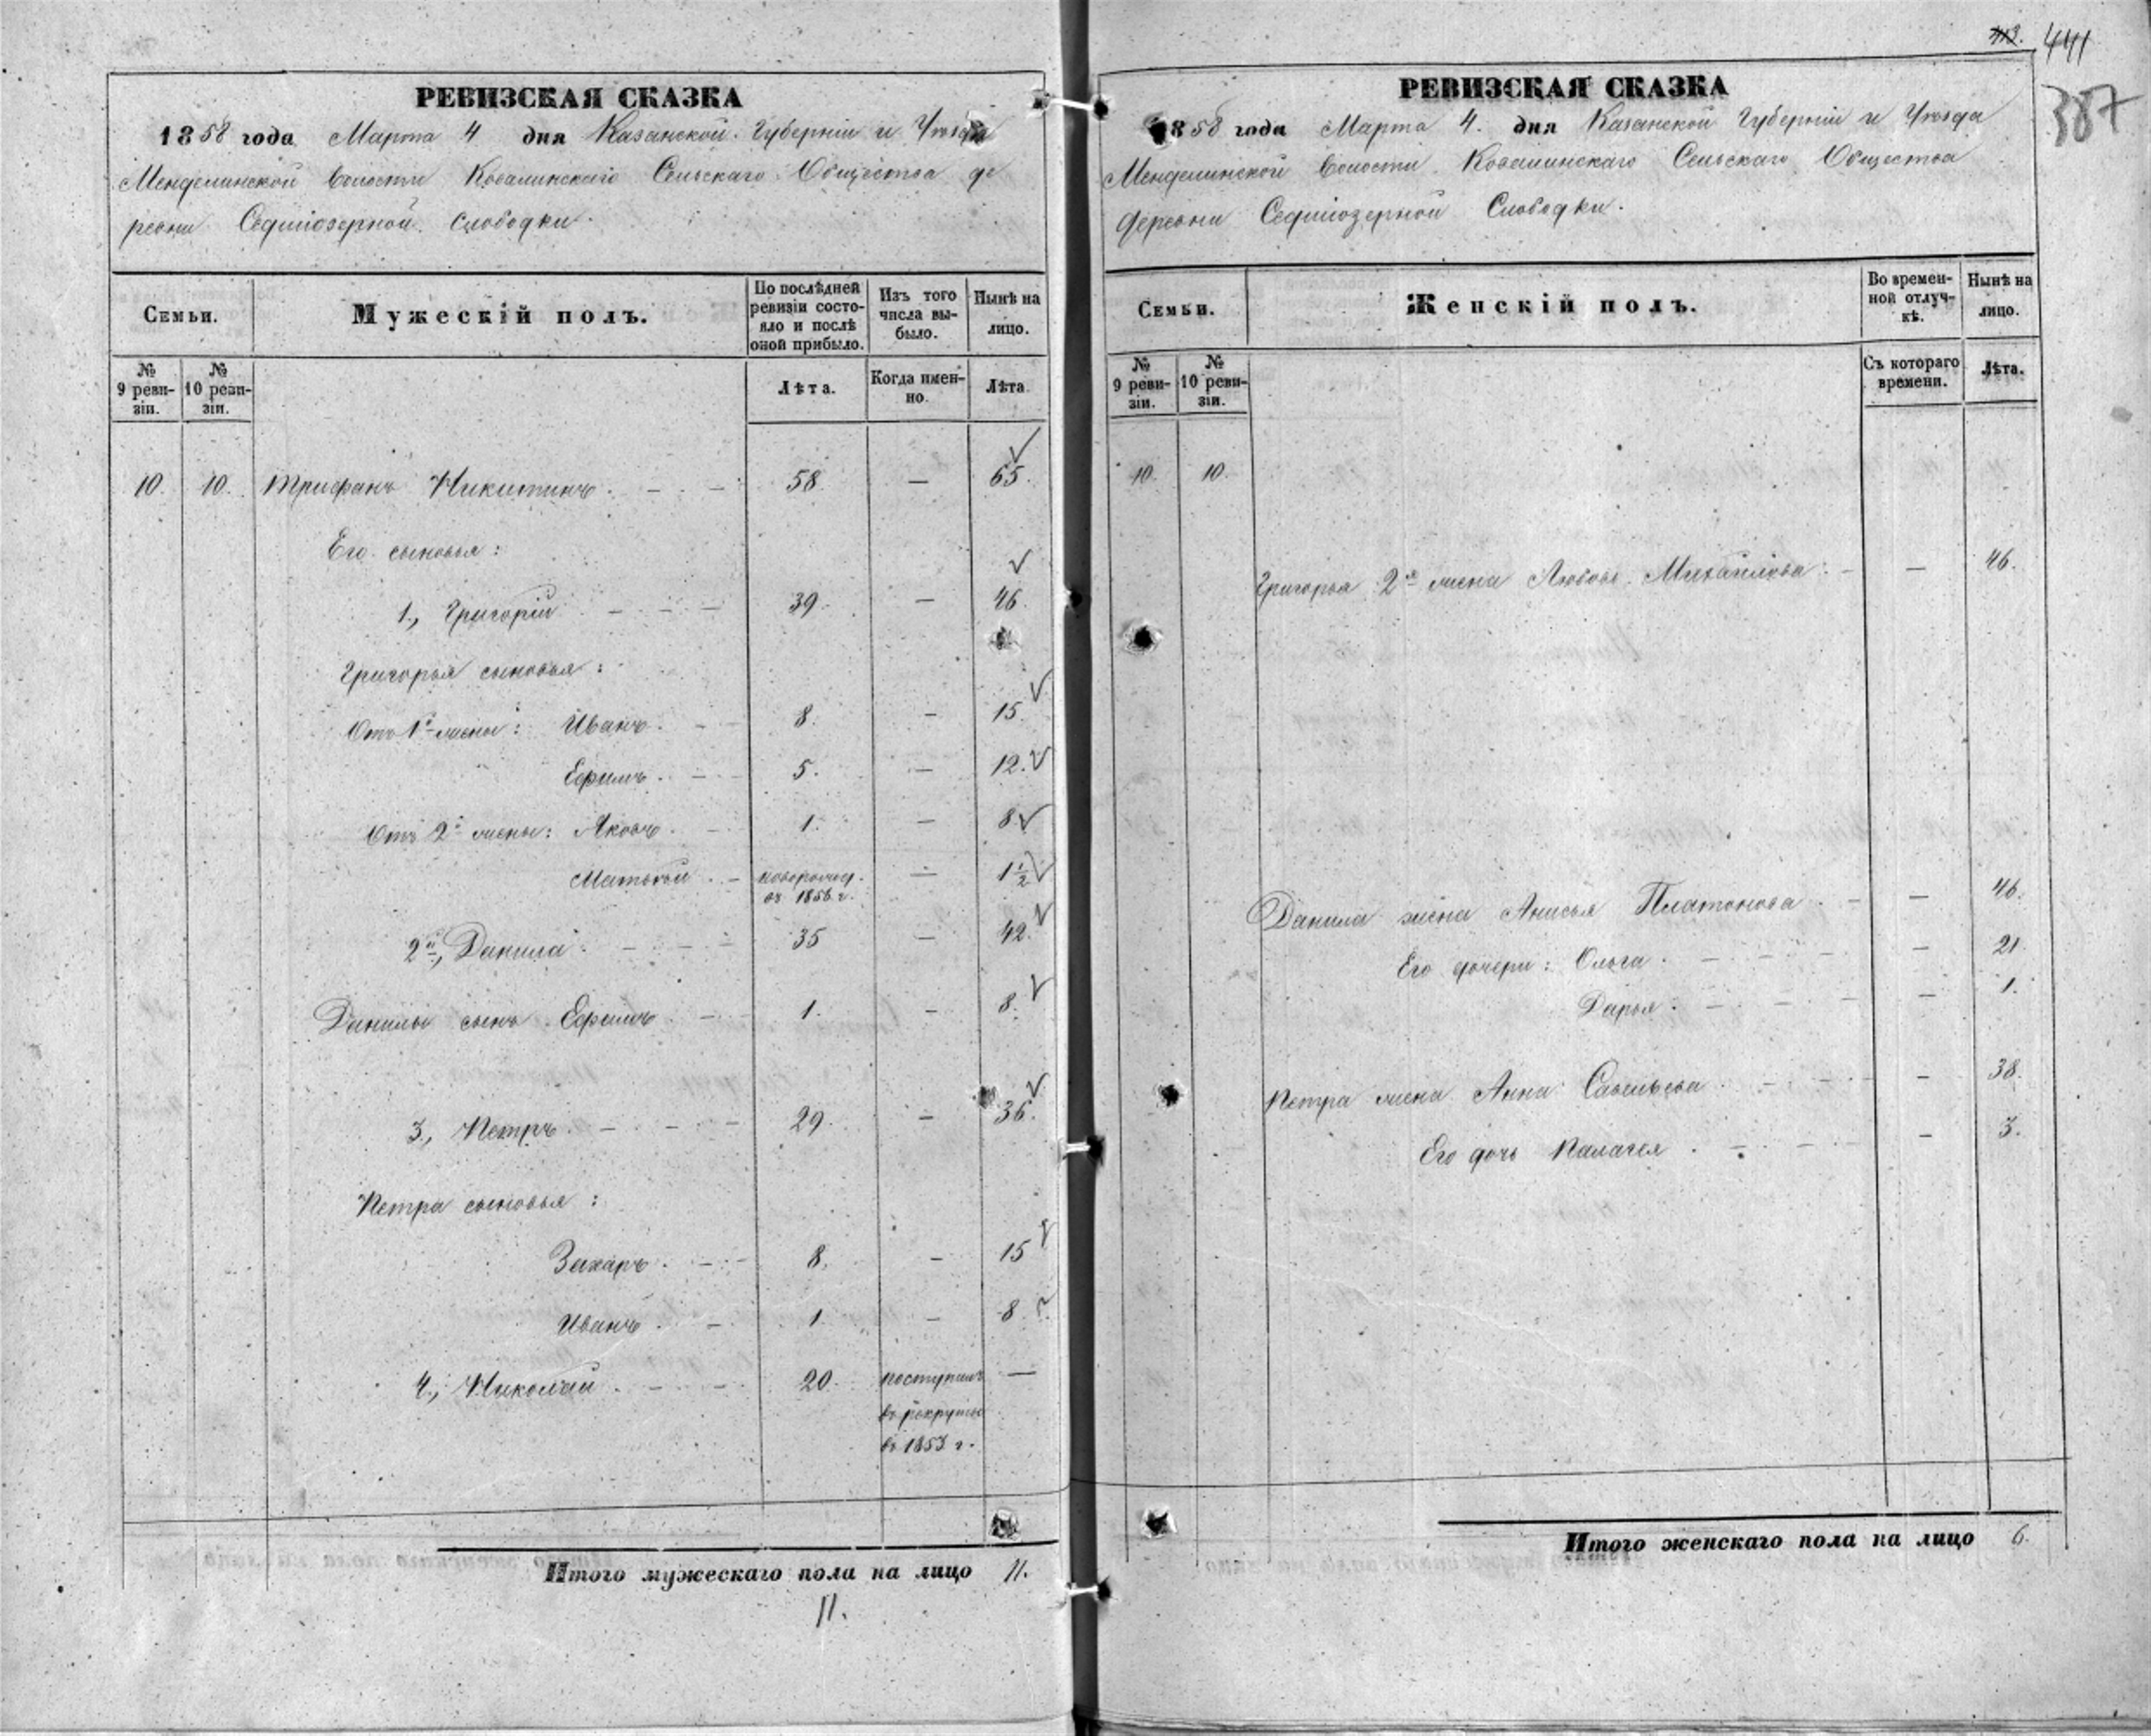 РЕВИЗСКАЯ СКАЗКА
1858 года Марта 4 дня Казанской Губерніи и Уѣзда
Менделинской волости Ковалинскаго Сельскаго Общества де
ревни Седміозерной слободки.
Семьи.
Мужескій полъ.
По послѣдней ревизіи состояло и послѣ оной прибыло.
Изъ того числа выбыло.
Нынѣ на лицо.
№ 9 ревизіи.
№ 10 ревизіи.
Лѣта.
Когда именно.
Лѣта.
10. 10. Трифанъ Никитинъ. 58. — 65.
Его сыновья:
1., Григорій 39. — 46.
Григорья сыновья:
Отъ 1й жены: Иванъ. 8. — 15.
Ефимъ. 5. — 12.
Отъ 2й жены: Яковъ. 1. — 8
Матвѣй. новорожд. въ 1856 г. — 1 1/2
2й, Данила. 35 — 42.
Данилы сынъ Ефимъ 1. — 8.
3., Петръ. 29. — 36.
Петра сыновья:
Захаръ. 8. — 15
Иванъ. 1 — 8
4., Николай. 20. поступилъ —
въ рекруты
въ 1853 г.
Итого мужескаго пола на лицо 11.
11.
441
387
РЕВИЗСКАЯ СКАЗКА
1858 года Марта 4. дня Казанской Губерніи и Уѣзда
Менделинской волости Ковалинскаго Сельскаго Общества
деревни Седміозерной Слободки.
Семьи.
Женскій полъ.
Во временной отлучкѣ.
Нынѣ на лицо.
№ 9 ревизіи.
№ 10 ревизіи.
Съ котораго времени.
Лѣта.
10. 10.
Григорья 2я жена Любовь Михайлова — 46.
Данила жена Анисья Платонова — 46.
Его дочери: Ольга. — 21.
Дарья. — 1.
Петра жена Анна Савельева — 38.
Его дочь Палагея. — 3.
Итого женскаго пола на лицо 6.